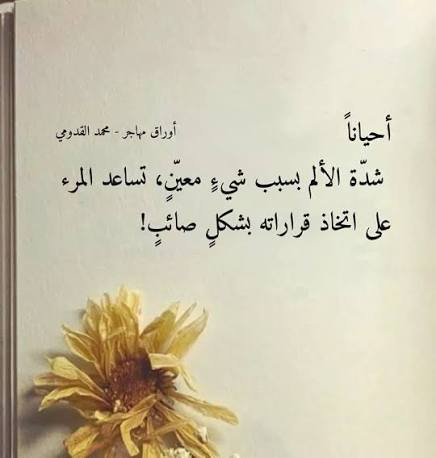 أحياناً
أوراق مهاجر - محمد القدومي
شدّة الألم بسبب شيءٍ معيّنٍ، تساعد المرء
على اتخاذ قراراته بشكلٍ صائبٍ!